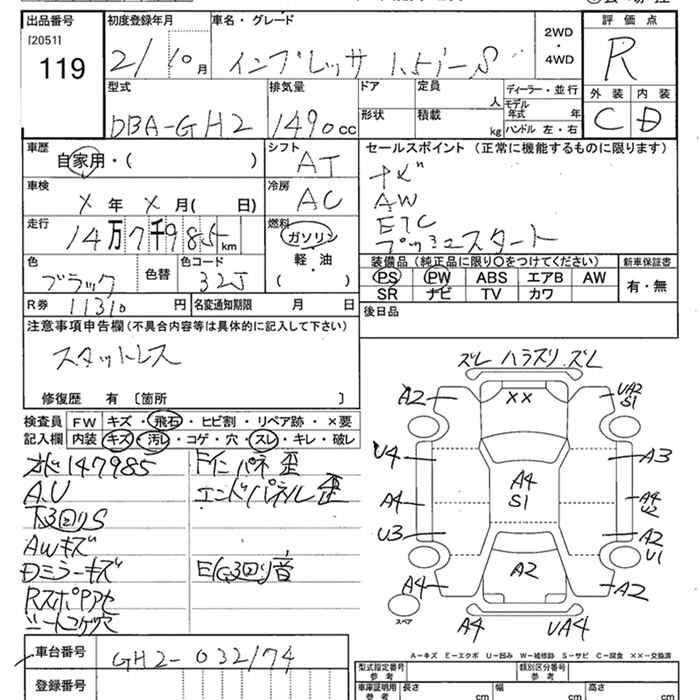 出品番号
[2051]
119
初度登録年月
2/10月
車名・グレード
インプレッサ 1.5i-S
2WD
・
4WD
評価点
R
外装 内装
C D
型式
DBA-GH2
排気量
1490cc
ドア
形状
定員
人
積載
kg
ディーラー・並行
モデル年式 年
ハンドル 左・右
車歴
自家用・( )
シフト
AT
セールスポイント (正常に機能するものに限ります)
ナビ
AW
ETC
プッシュスタート
車検
X年 X月( 日)
冷房
AC
走行
14万7千985km
燃料
ガソリン
軽・油
( )
色
ブラック
色替
色コード
32J
装備品(純正品に限り○をつけてください)
PS PW ABS エアB AW
SR ナビ TV カワ
新車保証書
有・無
R券 11310円
名変通知期限 月 日
後日品
注意事項申告欄(不具合内容等は具体的に記入して下さい)
スタットレス
修復歴 有 〔箇所 〕
検査員記入欄
FW キズ・飛石・ヒビ割・リペア跡・×要
内装 キズ・汚レ・コゲ・穴・スレ・キレ・破レ
オド147985
A.U
下回りS
AWキズ
Dミラーキズ
RスポPアセ
シートコゲ穴
Fインパネ歪
エンドパネル歪
E/G回り音
ズレ ハラズリ ズレ
A2 XX UA2
S1
U4 A3
A4
A4 S1 A4
U2
U3 A2
U1
A4 A2 A2
スペア
A4 UA4
A−キズ E−エクボ U−凹み W−補修跡 S−サビ C−腐食 ××−交換済
車台番号
GH2-032174
登録番号
型式指定番号
参考
類別区分番号
参考
車庫証明用
参考
長さ cm
幅 cm
高さ cm